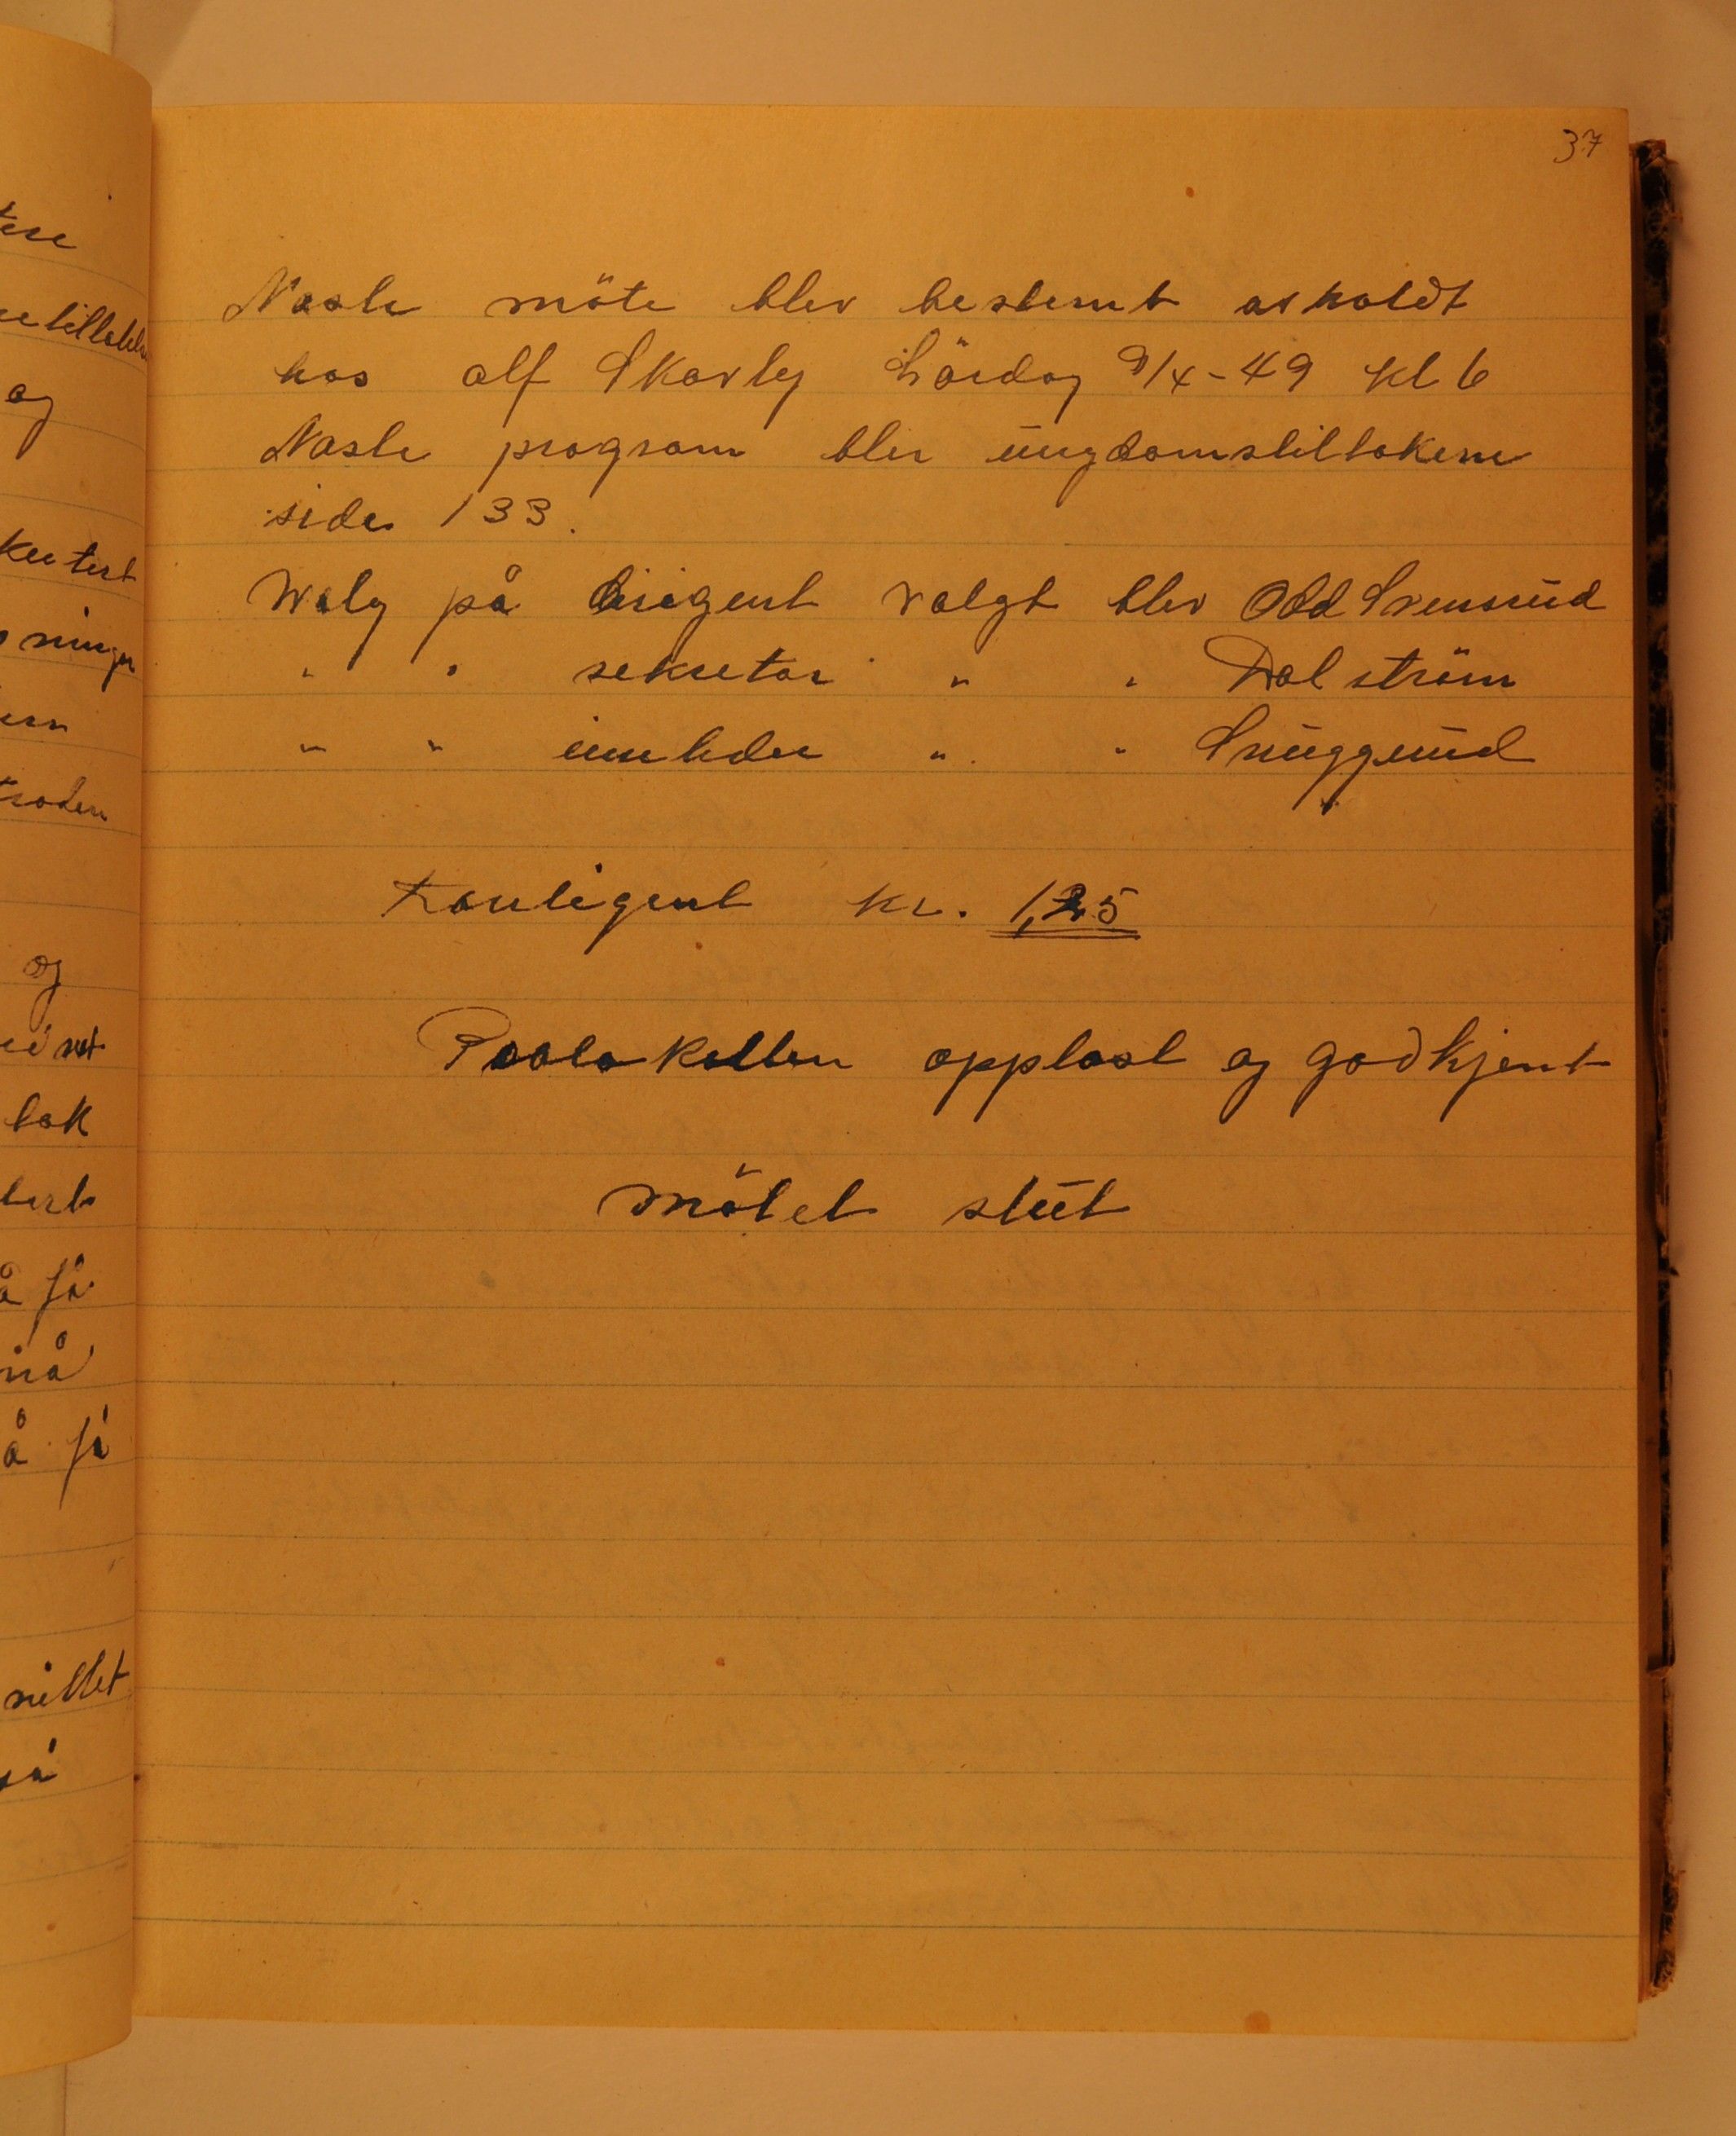 37
Naste möte blev bestemt avholdt
hos alf Skarby Lördag 9/4-49 kl 6
Naste program blir ungdomstiltakene
side 133.
Valg på dirigent valgt blev Odd Svensrud
" " sekretær " " Dalström
" " innleder " " Snuggerud
Kontigent kr. 1,25
Protokollen opplast og godkjent
mötet slut
tere
og
kutert
ninger
og
tak
å få
nå
å få